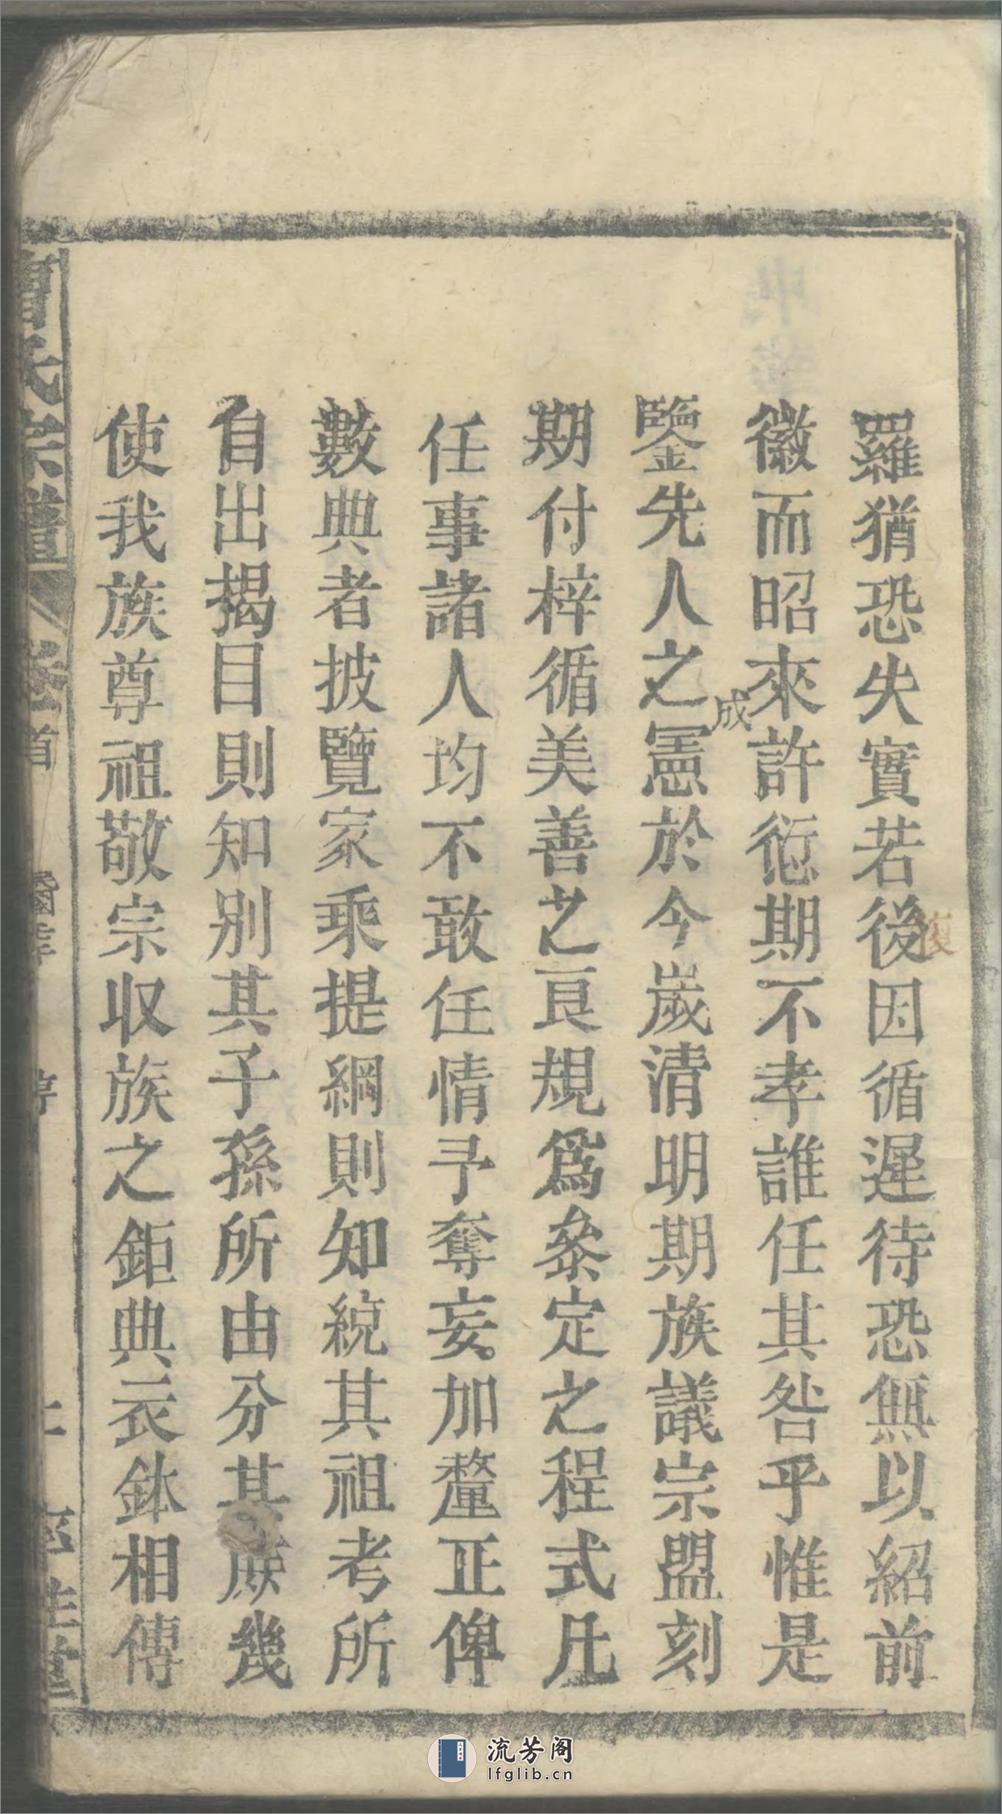 羅猶恐失實若後因循遲待恐無以紹前
復
徽而昭來許愆期不孝誰任其咎乎惟是
鑒先人之憲於今歲清明期族議宗盟刻
成
期付梓循美善之良規爲叅定之程式凡
任事諸人均不敢任情予奪妄加釐正俾
數典者披覽家乘提綱則知統其祖考所
自出揭目則知别其子孫所由分其族幾
使我族尊祖敬宗収族之鉅典衣鉢相傳
曹氏宗譜 卷首
流芳阁
lfglib.cn